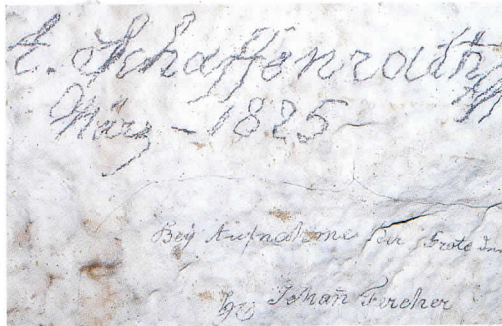 A. Schaffenrath
März - 1825
Bey Aufnahme der Grote
Johan̄ Fercher